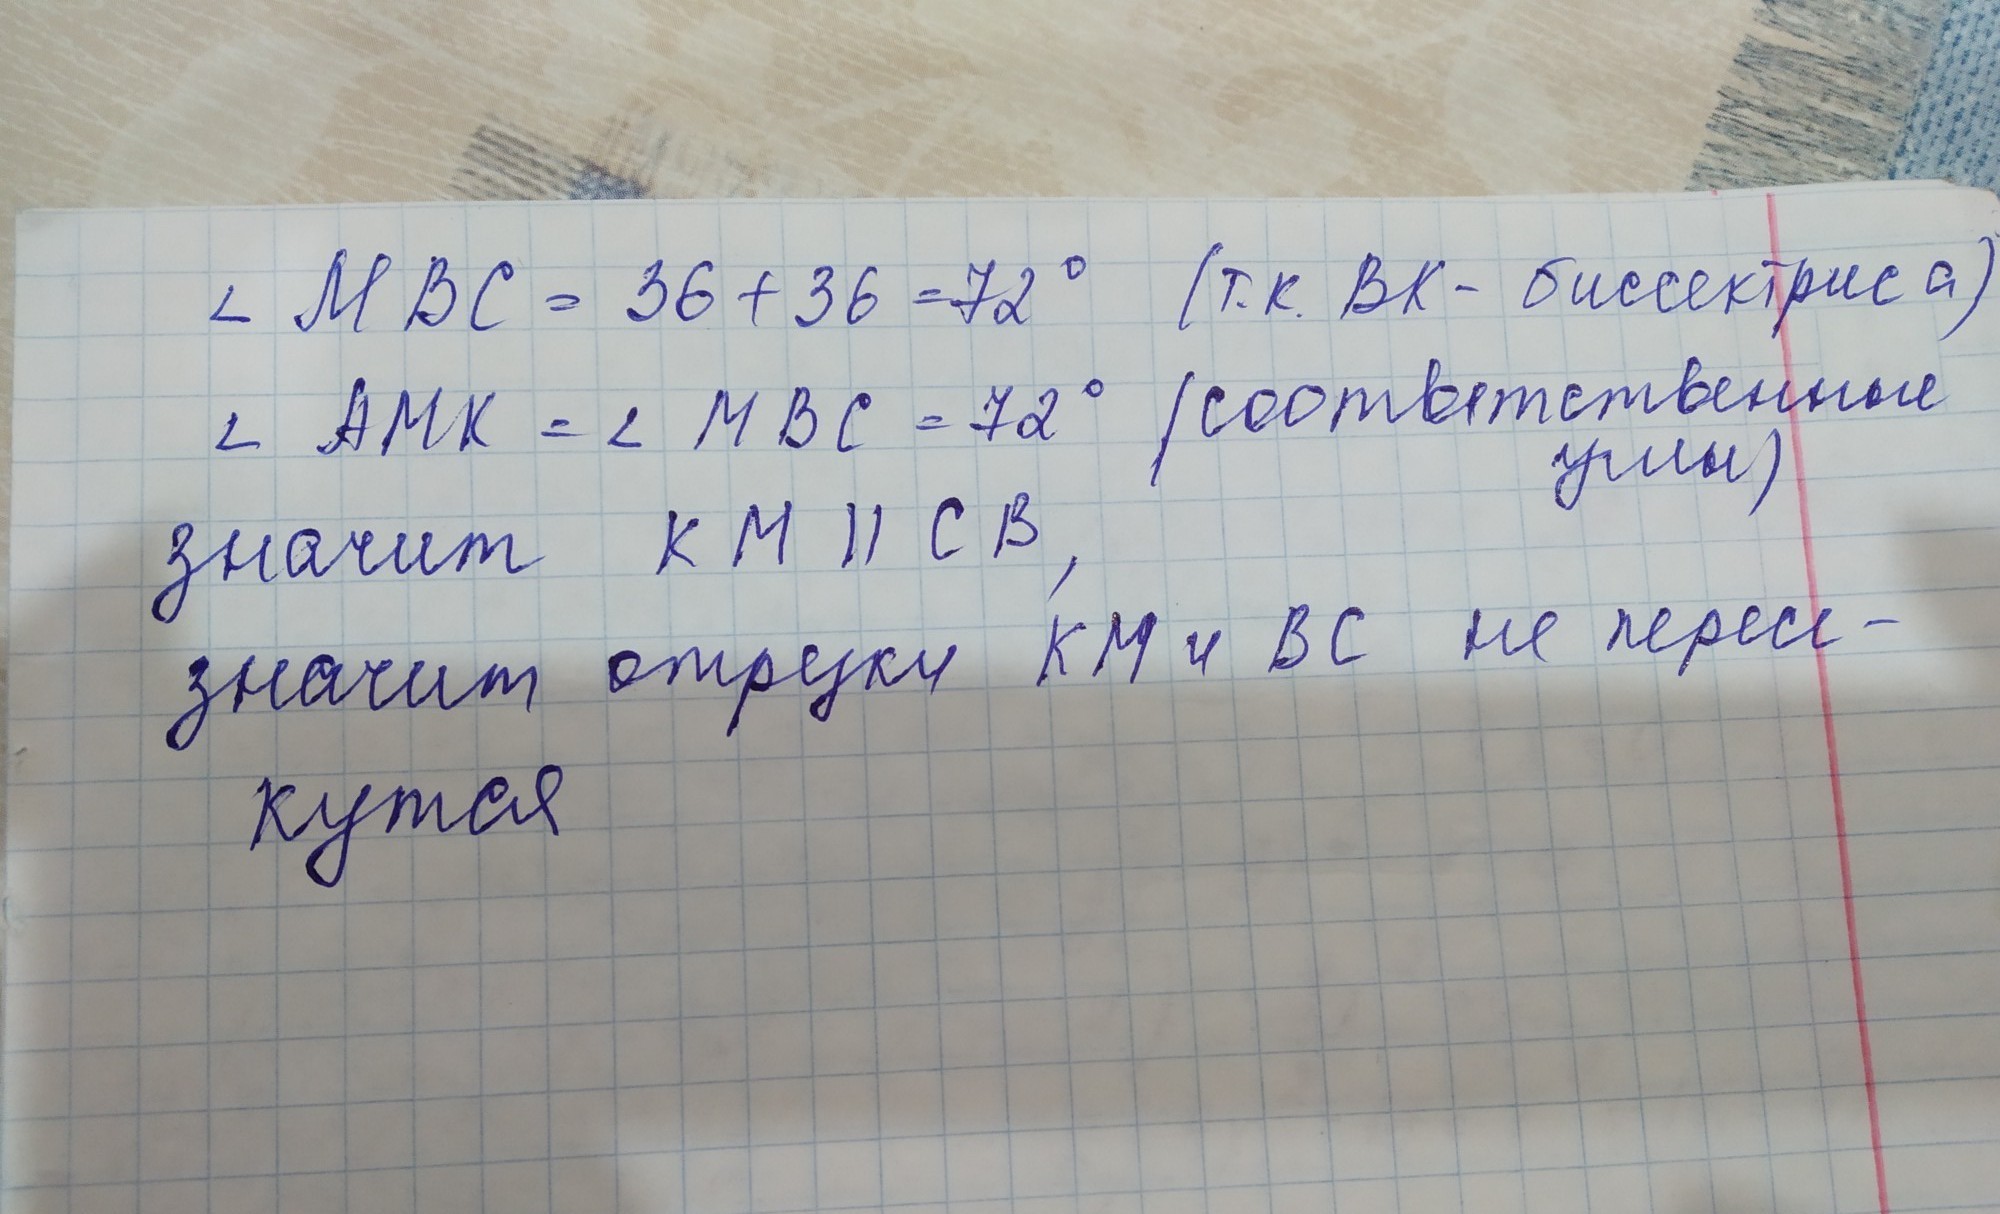 ∠ MBC = 36 + 36 = 72° (т.к. BK - биссектриса)
∠ AMK = ∠ MBC = 72° (соответственные
углы)
значит KM || CB,
значит отрезки KM и BC не пересе-
кутся